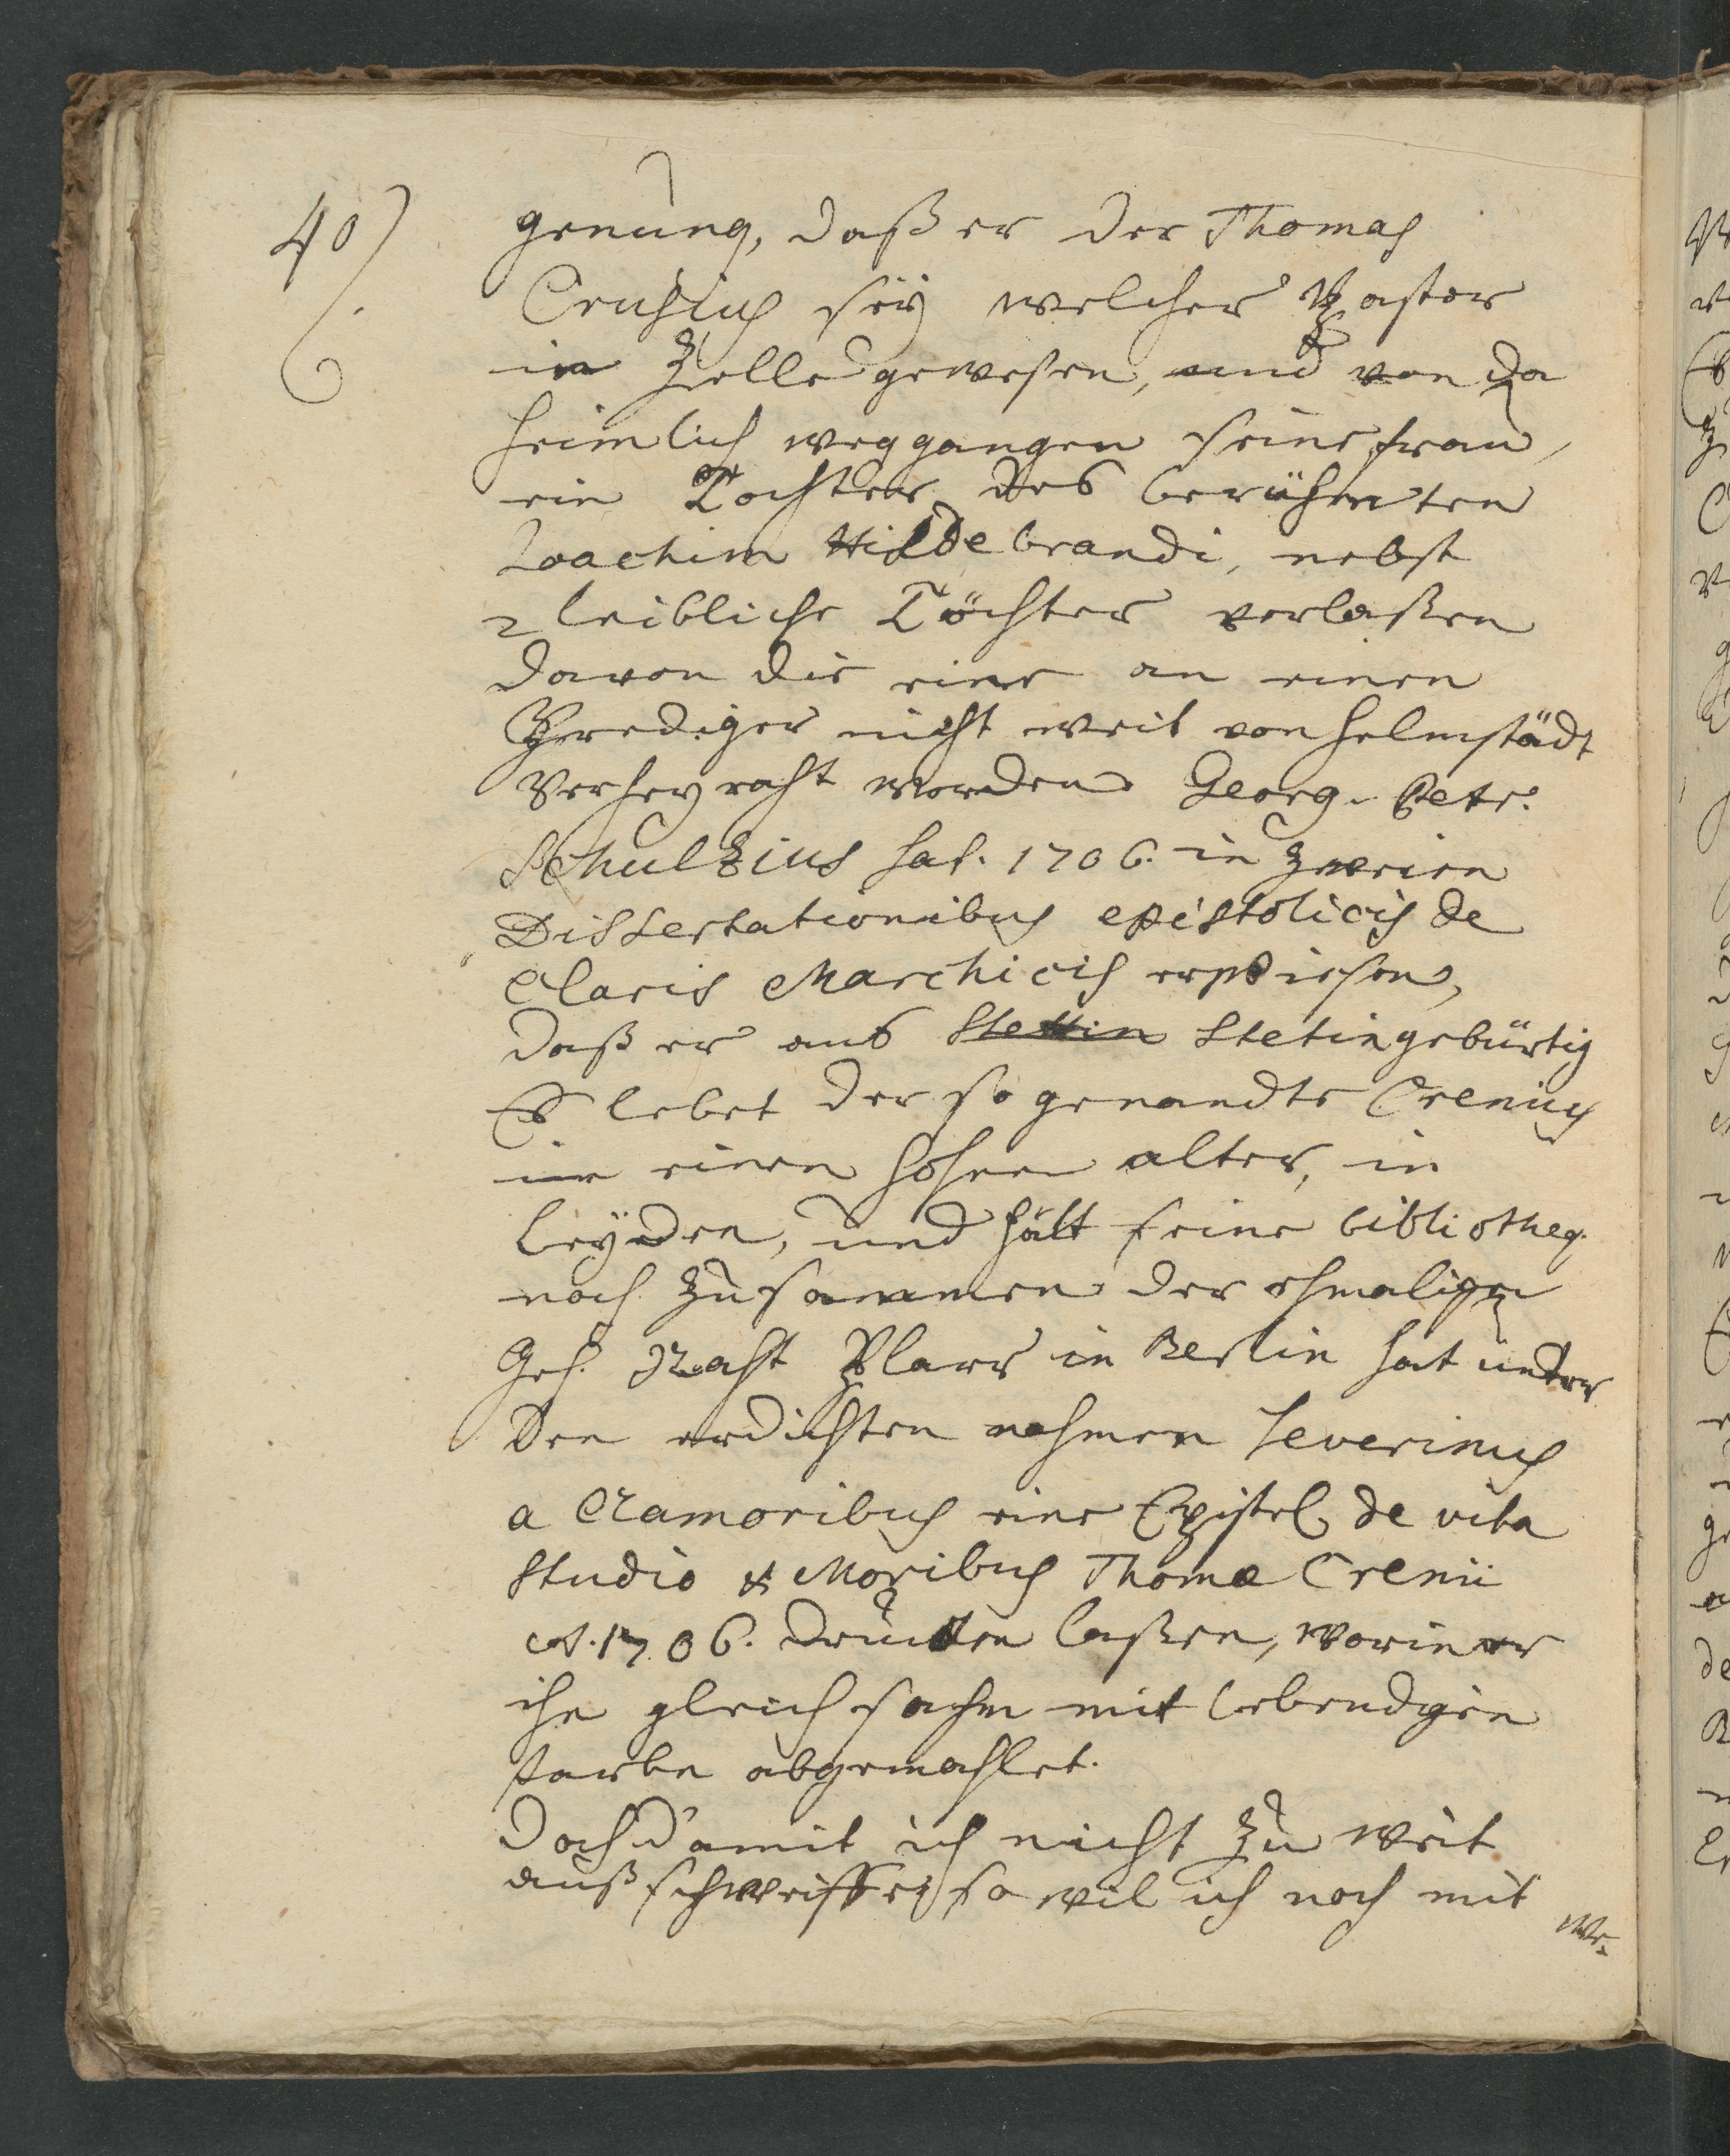 40)
genung, daß er der Thomas
Crusius sey welcher Pastor
in Zelle gewesen, und von da
heimlich weggangen seine frau,
ein Tochter des berühmten
Joachim Hildebrandi, nebst
2 leibliche Töchter verlaßen
davon die eine an einen
Prediger nicht weit von Helmstädt
verheyraht worden Georg. Petr.
Schulzius hat. 1706. in zweien
Dissertationibus epistolicis de
Claris Marchicis erwiesen,
daß er aus Stettin Stetin gebürtig
Es lebet der so genandte Crenius
in einen hohen alter, in
Leyden, und hält seine biblioth.
noch zusammen der ehmalige
Geh. Raht Plarr in Berlin hat unter
den erdichten nahmen Severinus
a Clamoribus eine Epistel de vita
studio & Moribus Thomæ Crenii
A. 1706. drucken laßen, worin er
ihn gleichsahm mit lebendigen
farben abgemahlet.
Doch damit ich nicht zu weit
außschweiffe, so wil ich noch mit
we-